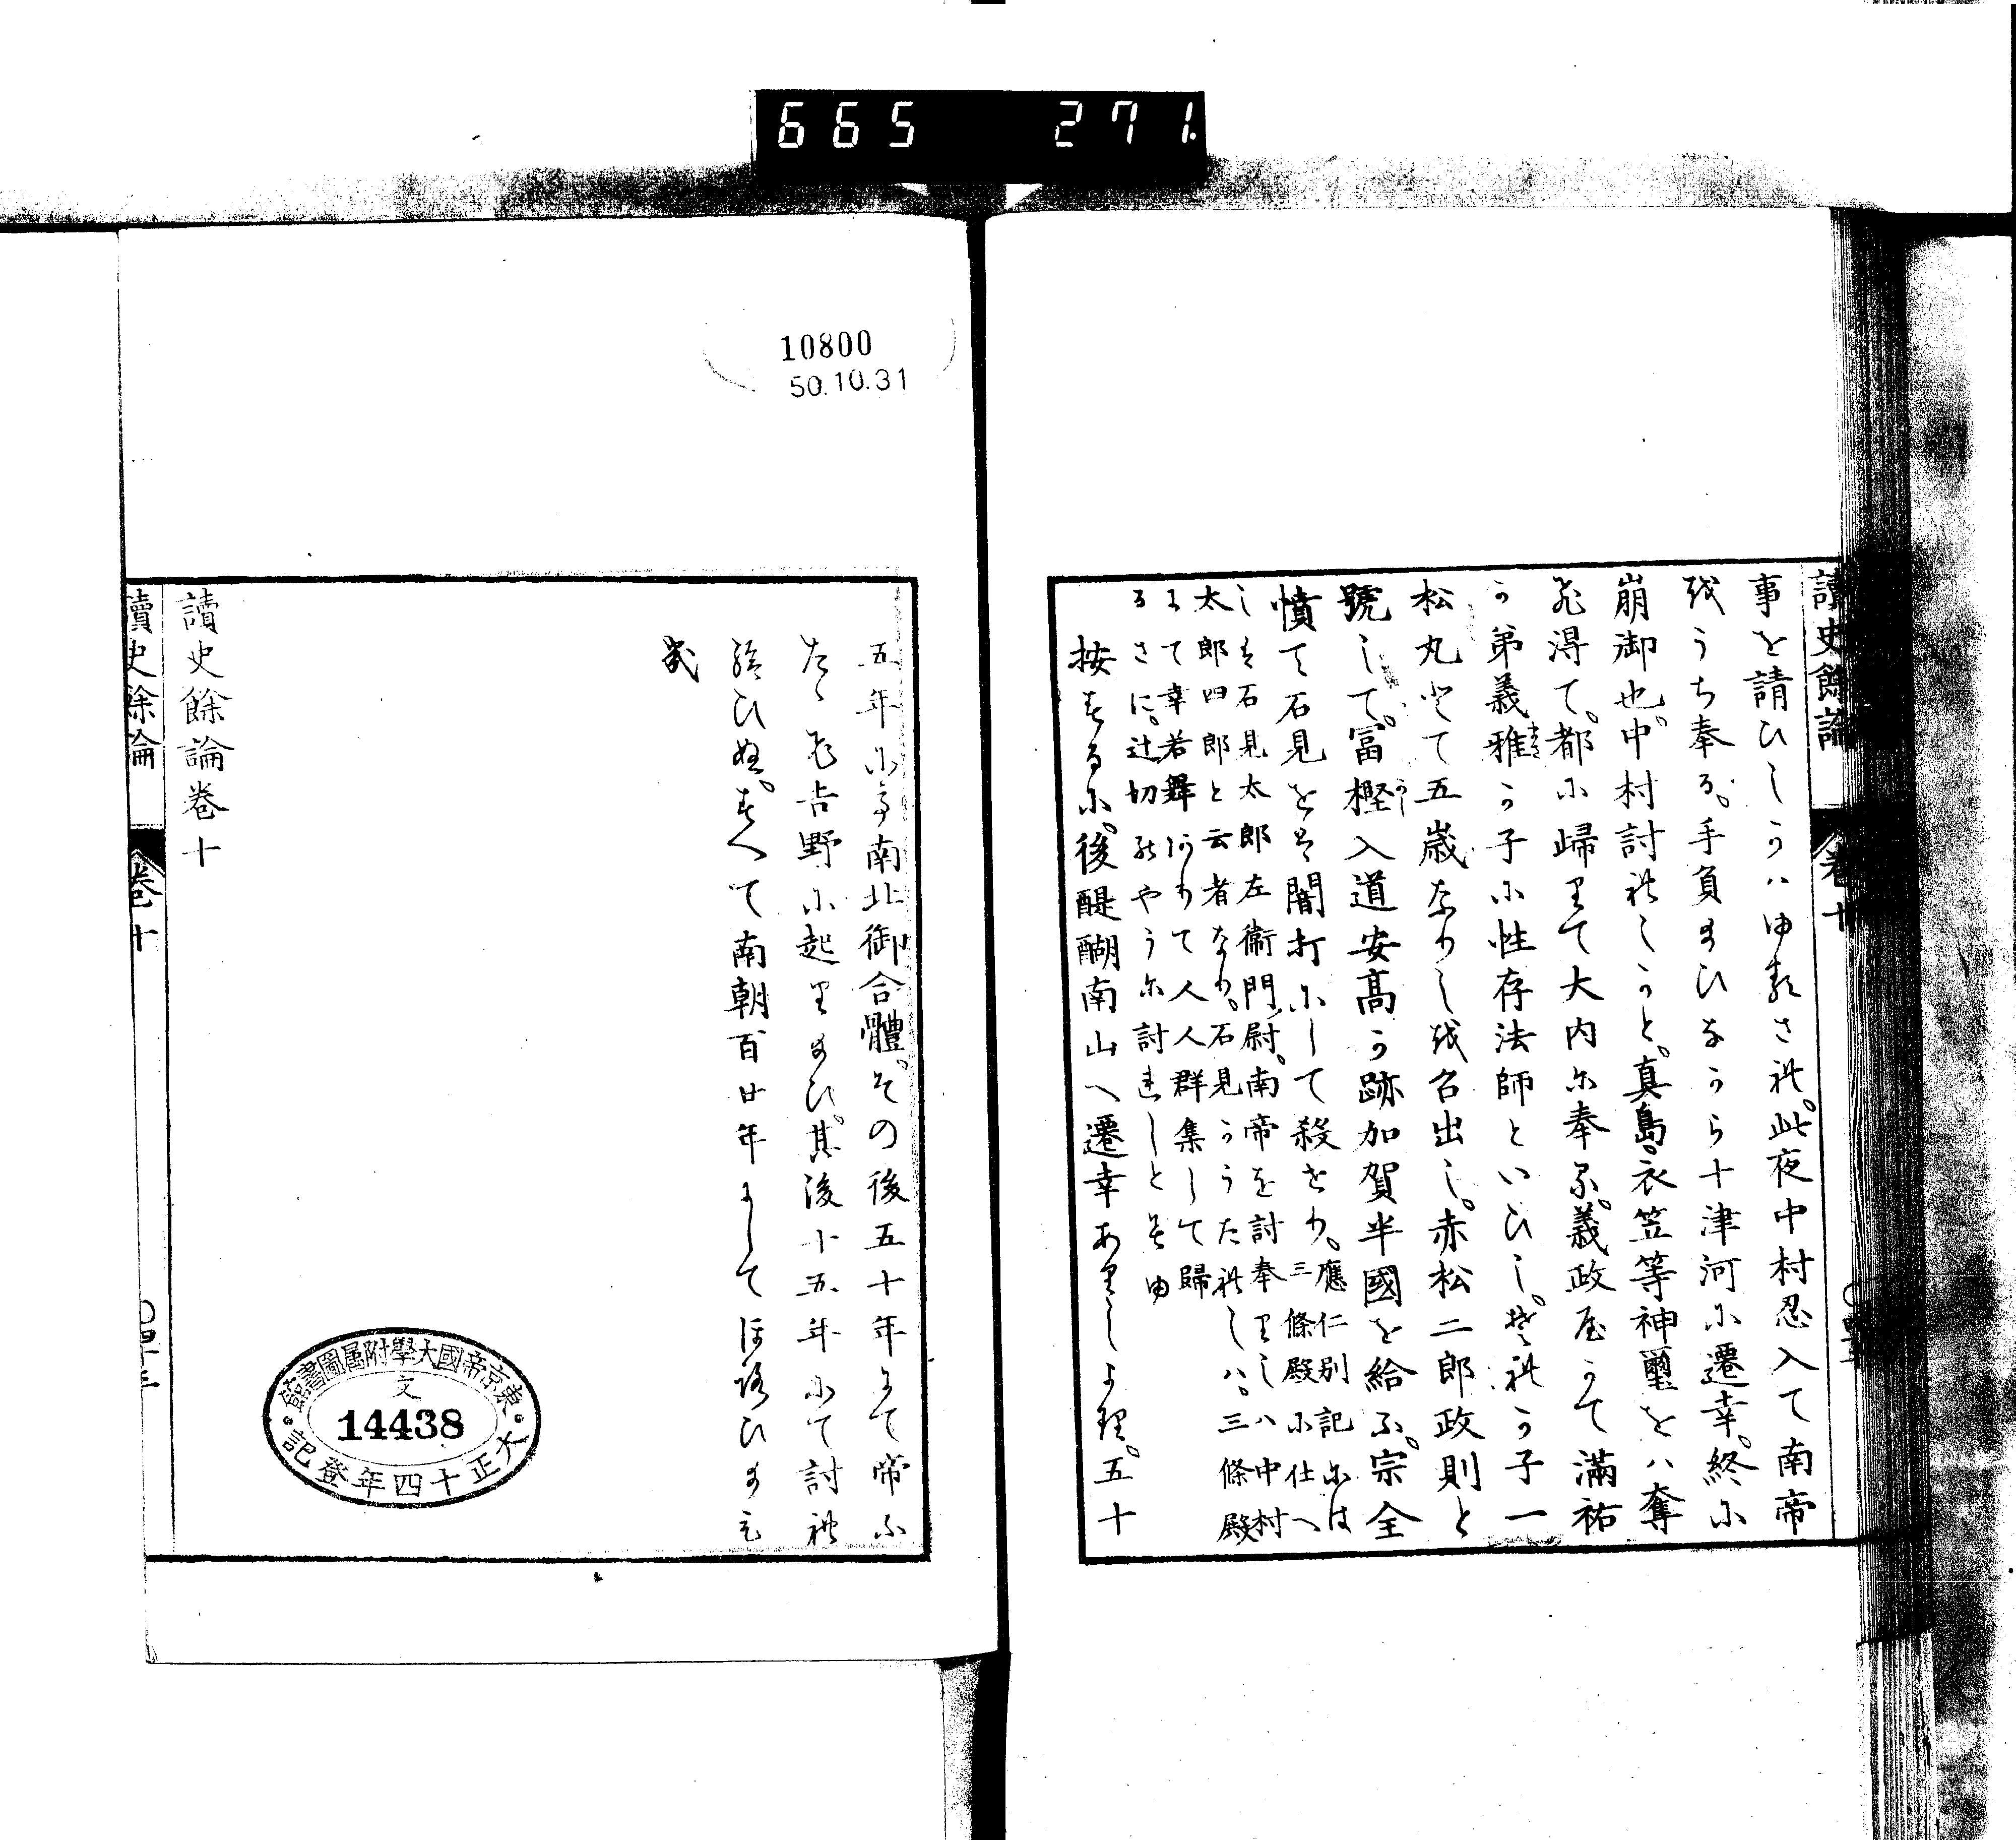 665 271
讀史餘論 卷十
事を請ひしかハゆるさる此夜中村忍入て南帝
をうち奉る。手負まひなから十津河に遷幸。終に
崩御也。中村討れしかと。真島。衣笠等神璽をハ奪
ひ得て。都に歸りて大内に奉る。義政 かて滿祐
か弟義雅か子に性存法師といひし。それか子一
松丸とて五歳なりしを召出し。赤松二郎政則と
號して。冨樫入道安髙か跡加賀半國を給ふ。宗全
憤て石見をは闇打にして殺せり。應仁別記には
三條殿に仕へ
しは石見太郎左衞門尉。南帝を討奉りしハ中村
太郎四郎と云者なり。石見かうたれしハ。三條殿
にて幸若舞ありて人人群集して歸
るさに。辻切のやうに討れしと見ゆ
按するに。後醍醐南山へ遷幸ありしより。五十
五年に南北御合體。その後五十年にて帝ふ
たゝひ吉野に起りまひ。其後十五年にて討れ
給ひぬ。すへて南朝百廿年にしてほろひまも

讀史餘論卷十
讀史餘論 卷十 〇四十三
10800
50.10.31
東京帝國大學附屬圖書館
文
14438
大正十四年登記